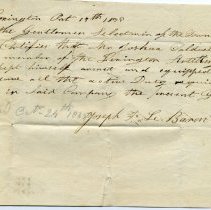 Lexington Oct 19th 1808
the Gentlemen Selectmen of the Town
Certifies that Mr Joshua
member of the Lexington Artillery
kept himself armed and equipped
all that Active Duty required
in Said Company the present
Oct 20th
Joseph Le Baron